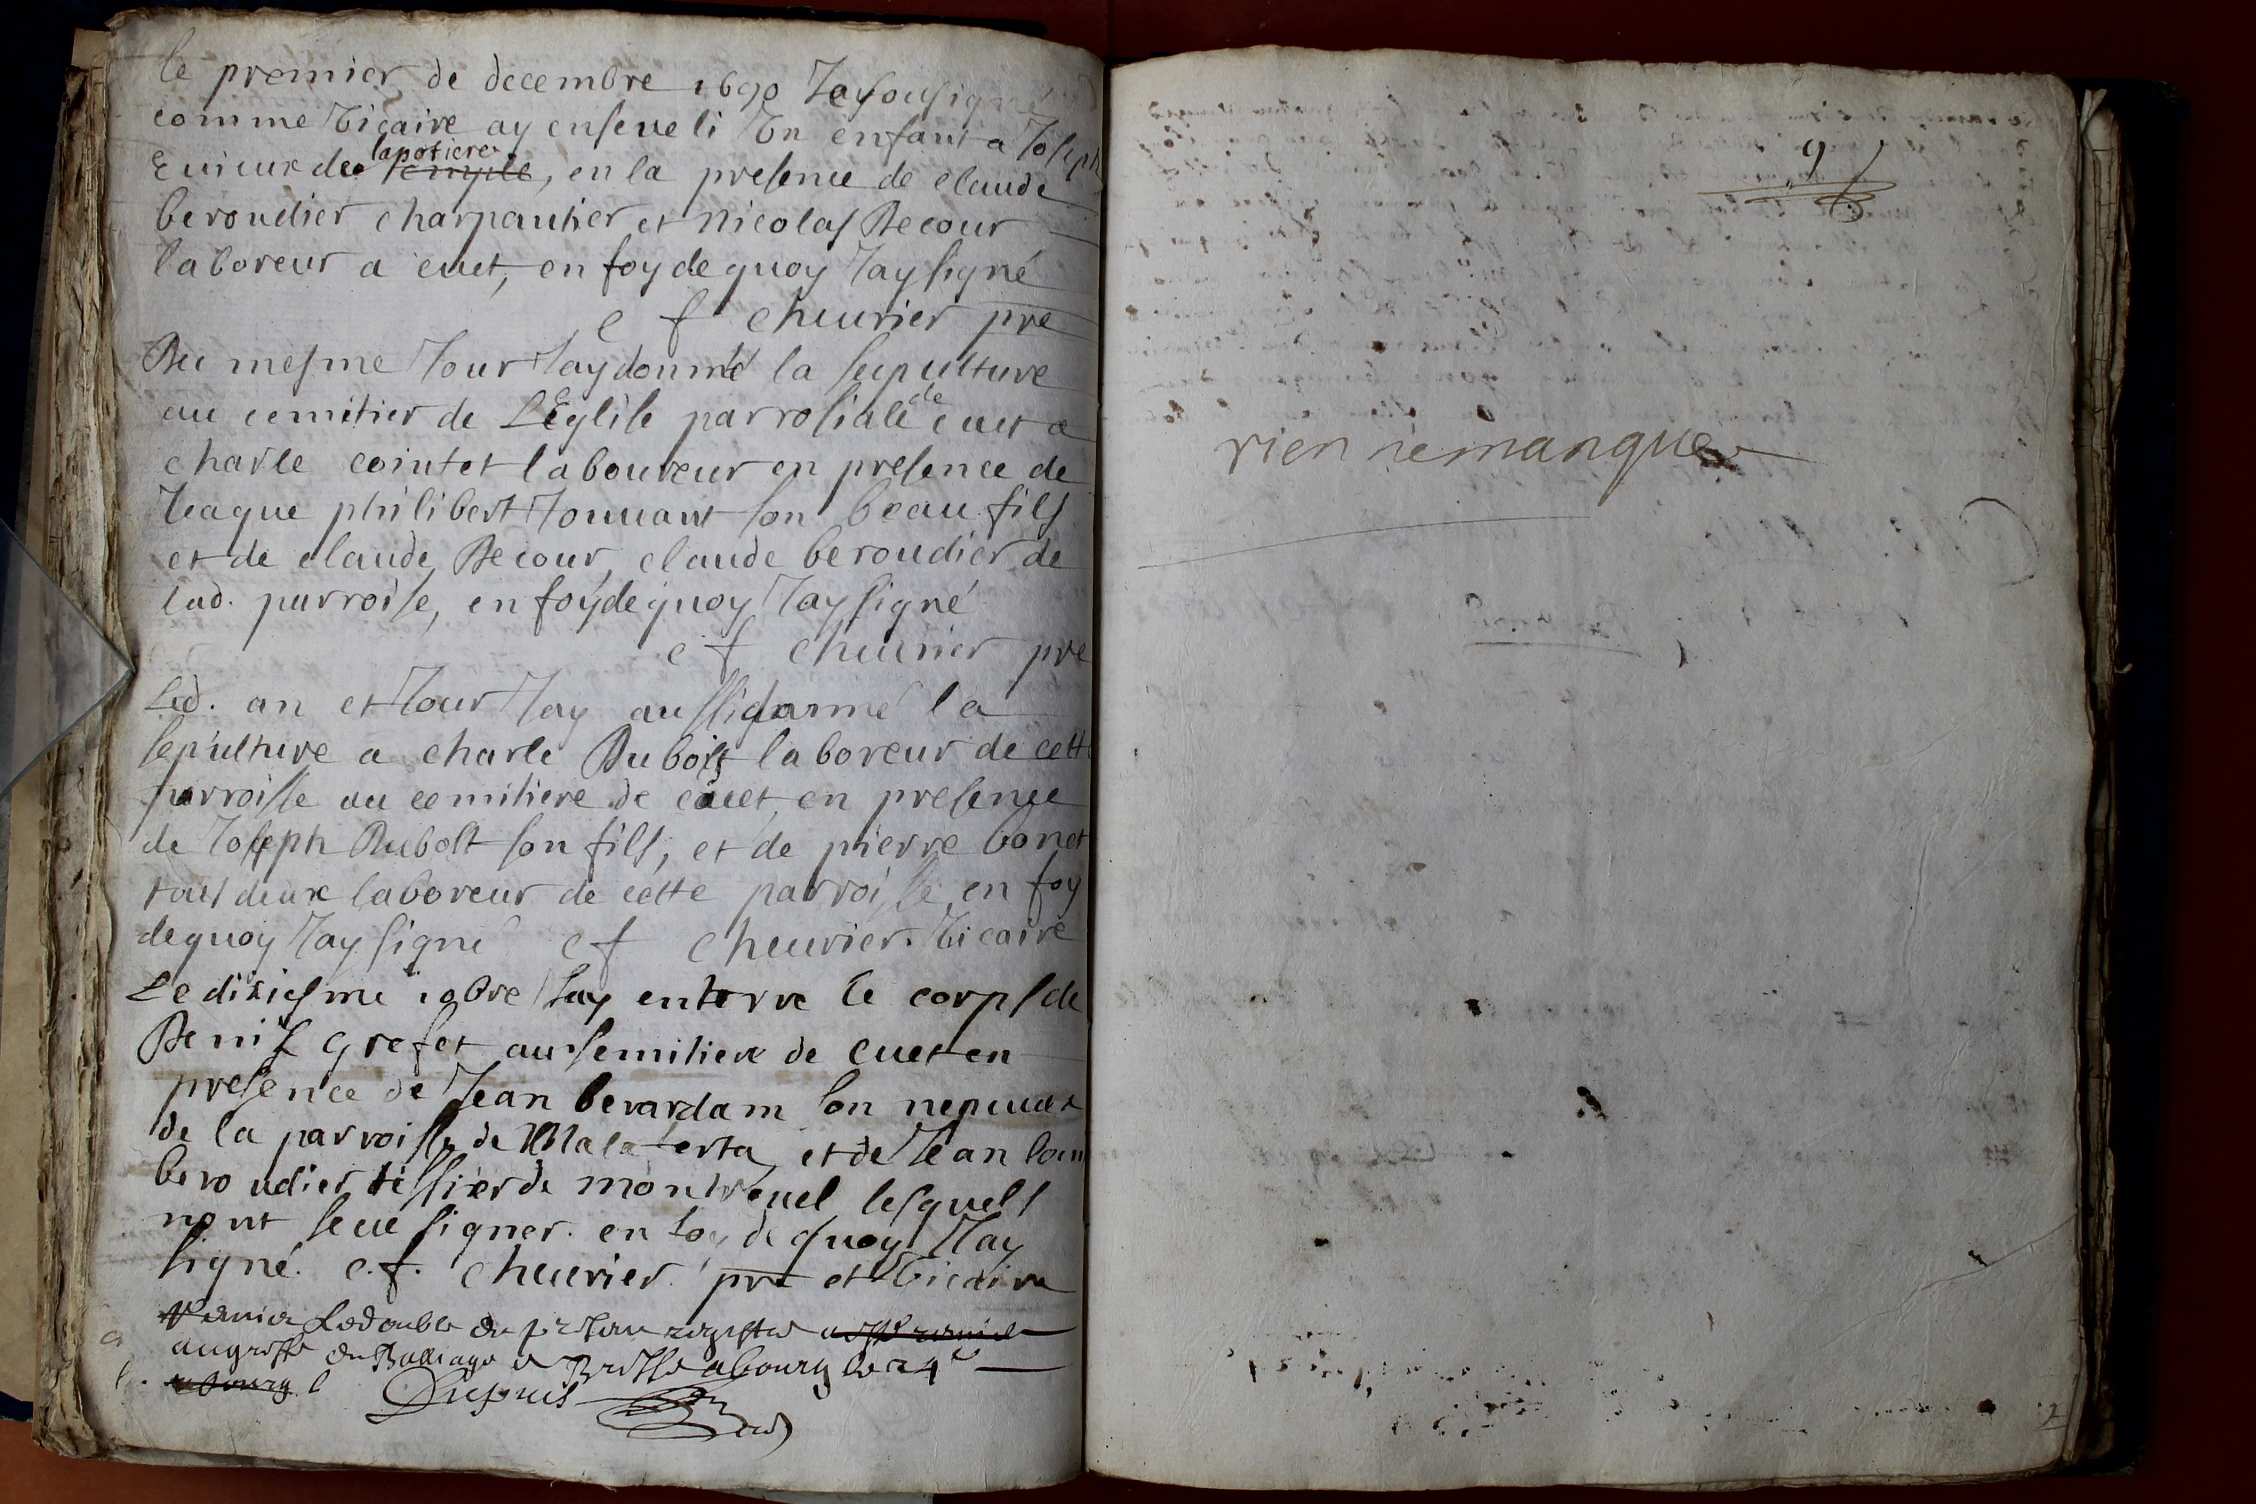 le premier de decembre 1690 Jay sousigné
comme vicaire ay enseveli vn enfant a Joseph
Euieux de lapotiere temple, en la presence de claude
beroudier charpantier et nicolas Decour
laboreur a cuet, en foy de quoy Jay signé
c f cheurier pre
Du mesme Jour Jay donné la sepulture
au cemetier de L'Eglise parrosiale de cuet a
charle cointet laboureur en presence de
Jeaque philibert Jouuant son beau fils
et de claude Decour, claude beroudier de
lad. parroise, en foy de quoy Jay signé
c f cheurier pre
Led. an et Jour Jay aussi donné la
sepulture a charle Dubost laboreur de cette
parroisse au cemitiere de cuet en presence
de Joseph Dubost son fils, et de pierre bonet
tous deux laboreur de cette parroisse en foy
de quoy Jay signé c f cheurier vicaire
Le dixiesme 10bre Jay enterre le corps de
Denis grefet au semitiere de cuet en
presence de Jean berardam son nepueux
de la parroisse de Malaferta et de Jean
beroudier tissier de montreuel lesquels
nont seue signer. en foy de quoy Jay
signé. c. f. cheurier pre et vicaire
Le double du present registre
au greffe du Balliage de Bresse a bourg le 24e
a bourg Dupuis
9
rien ne manque